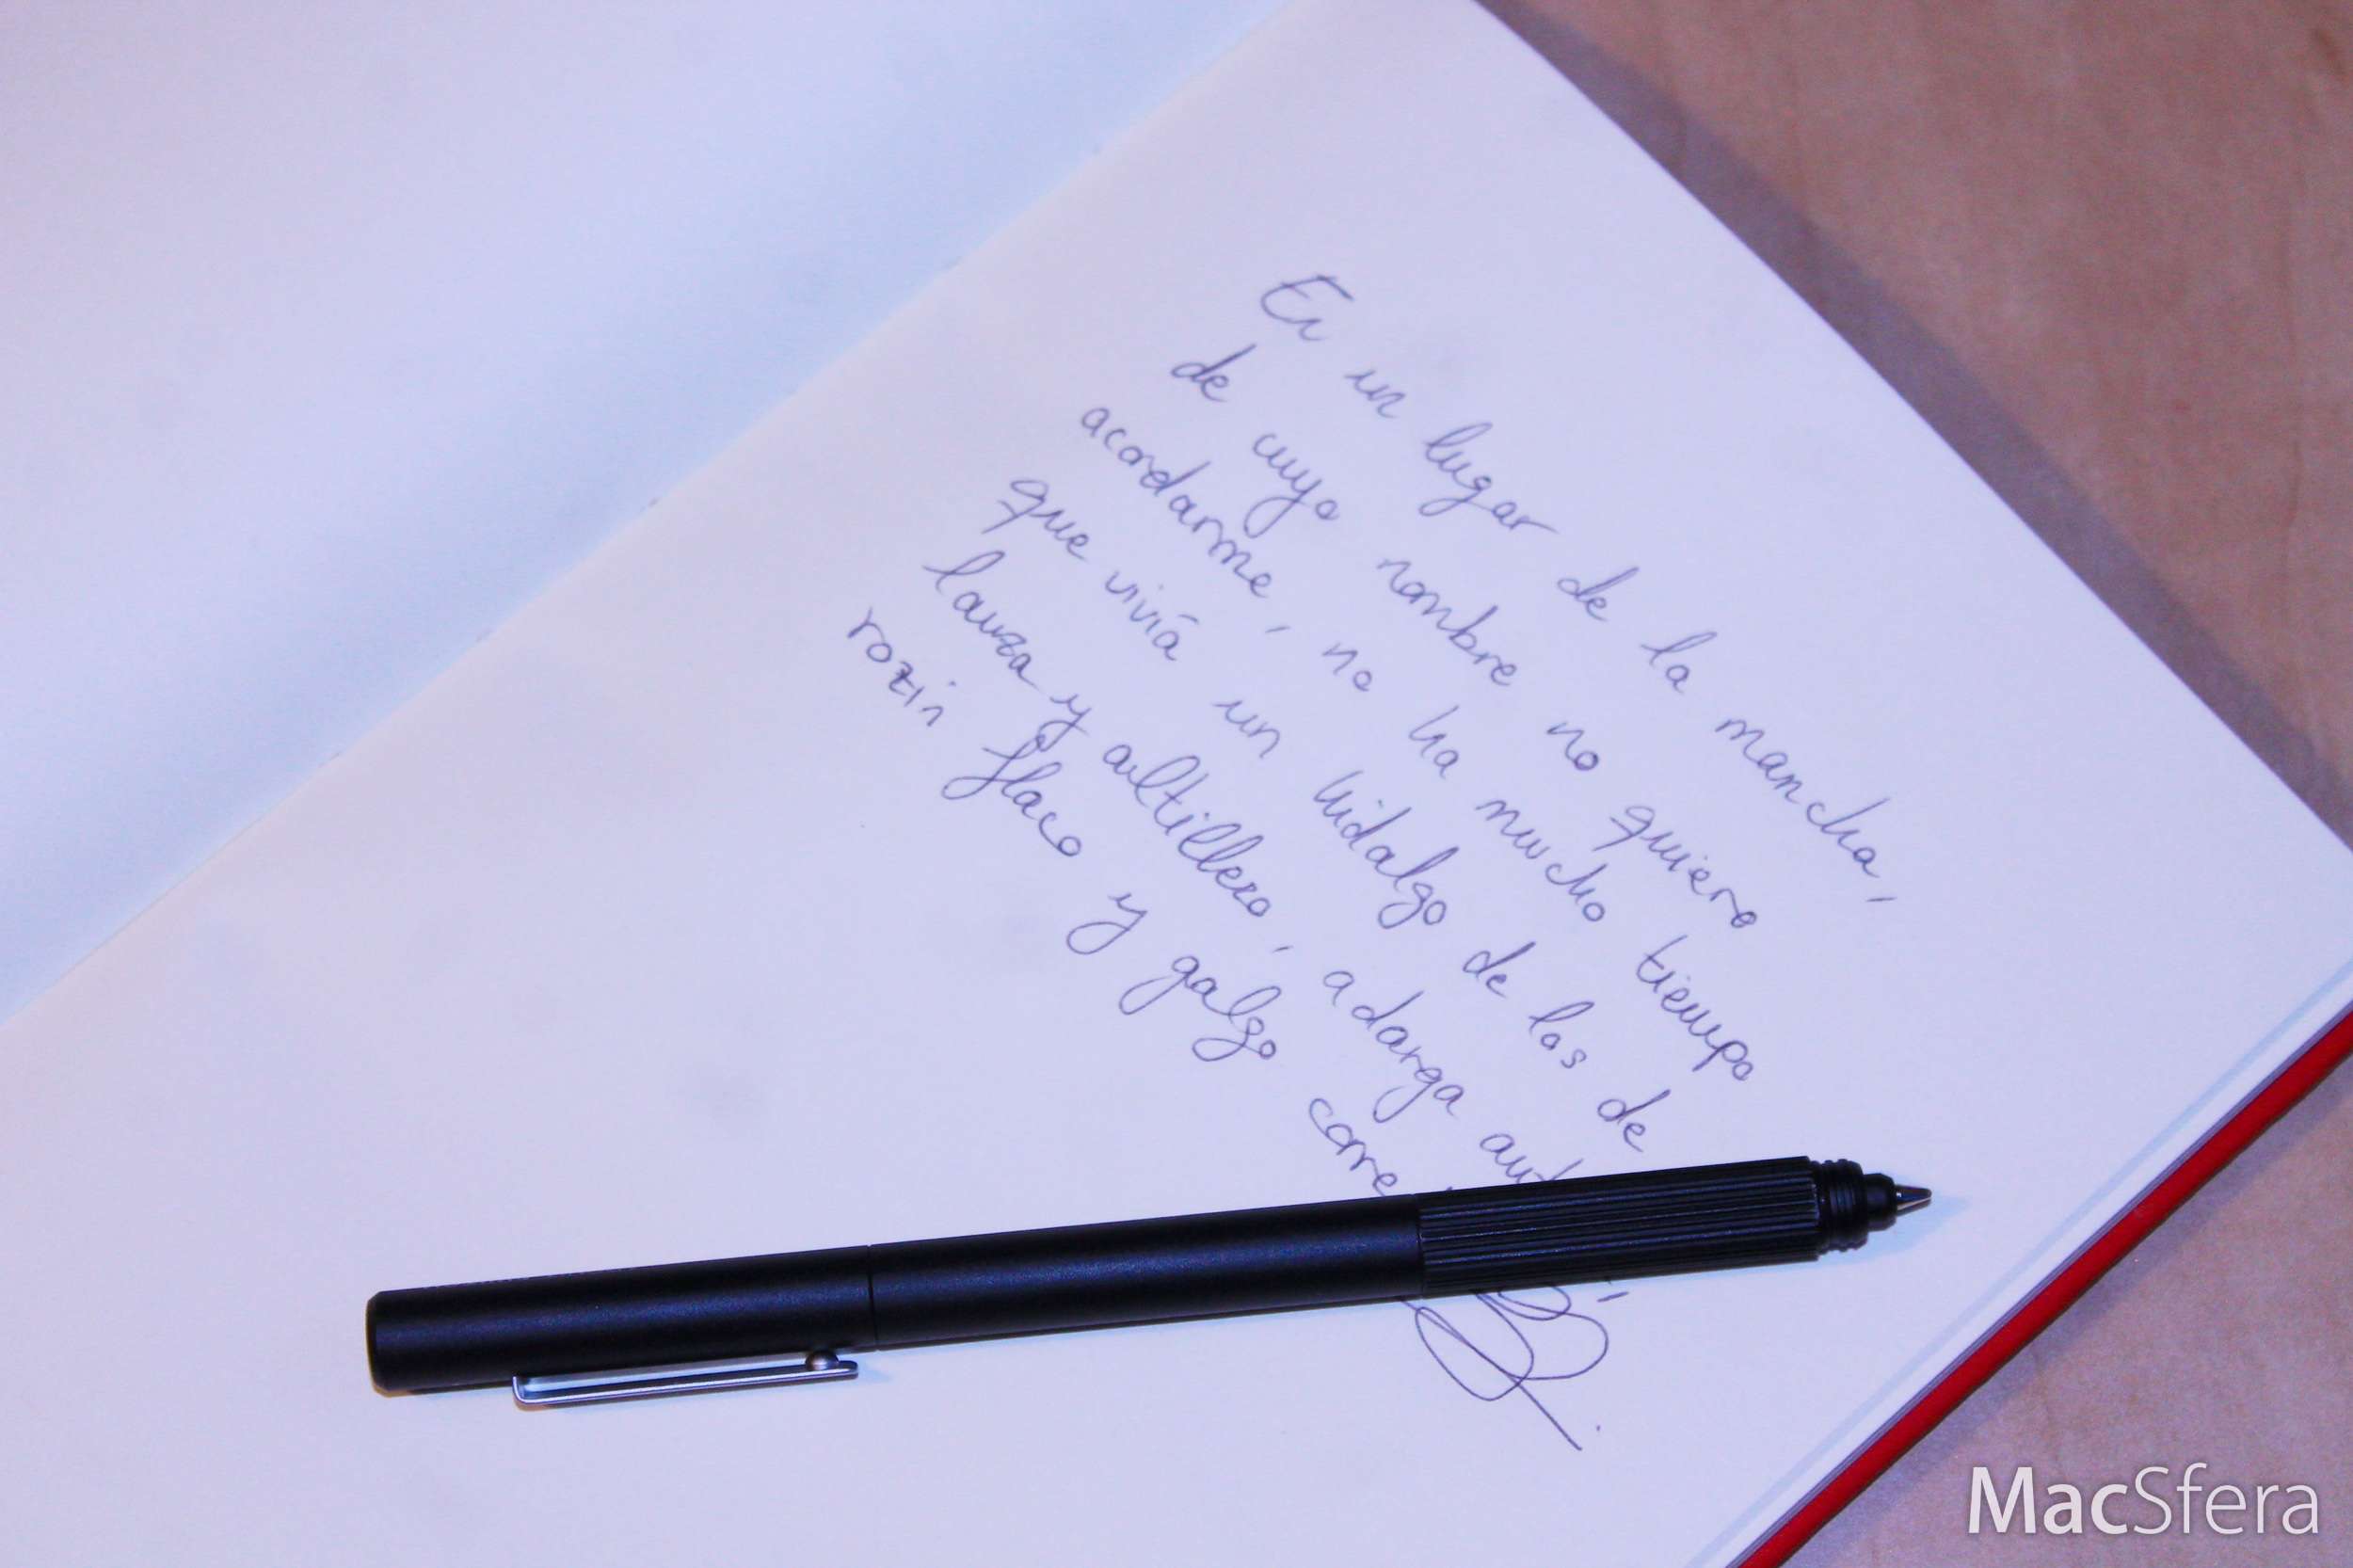 En un lugar de la mancha,
de cuyo nombre no quiero
acordarme, no ha mucho tiempo
que viviá un hidalgo de los de
lanza y altillero, adarga
rozín flaco y galgo corre
MacSfera